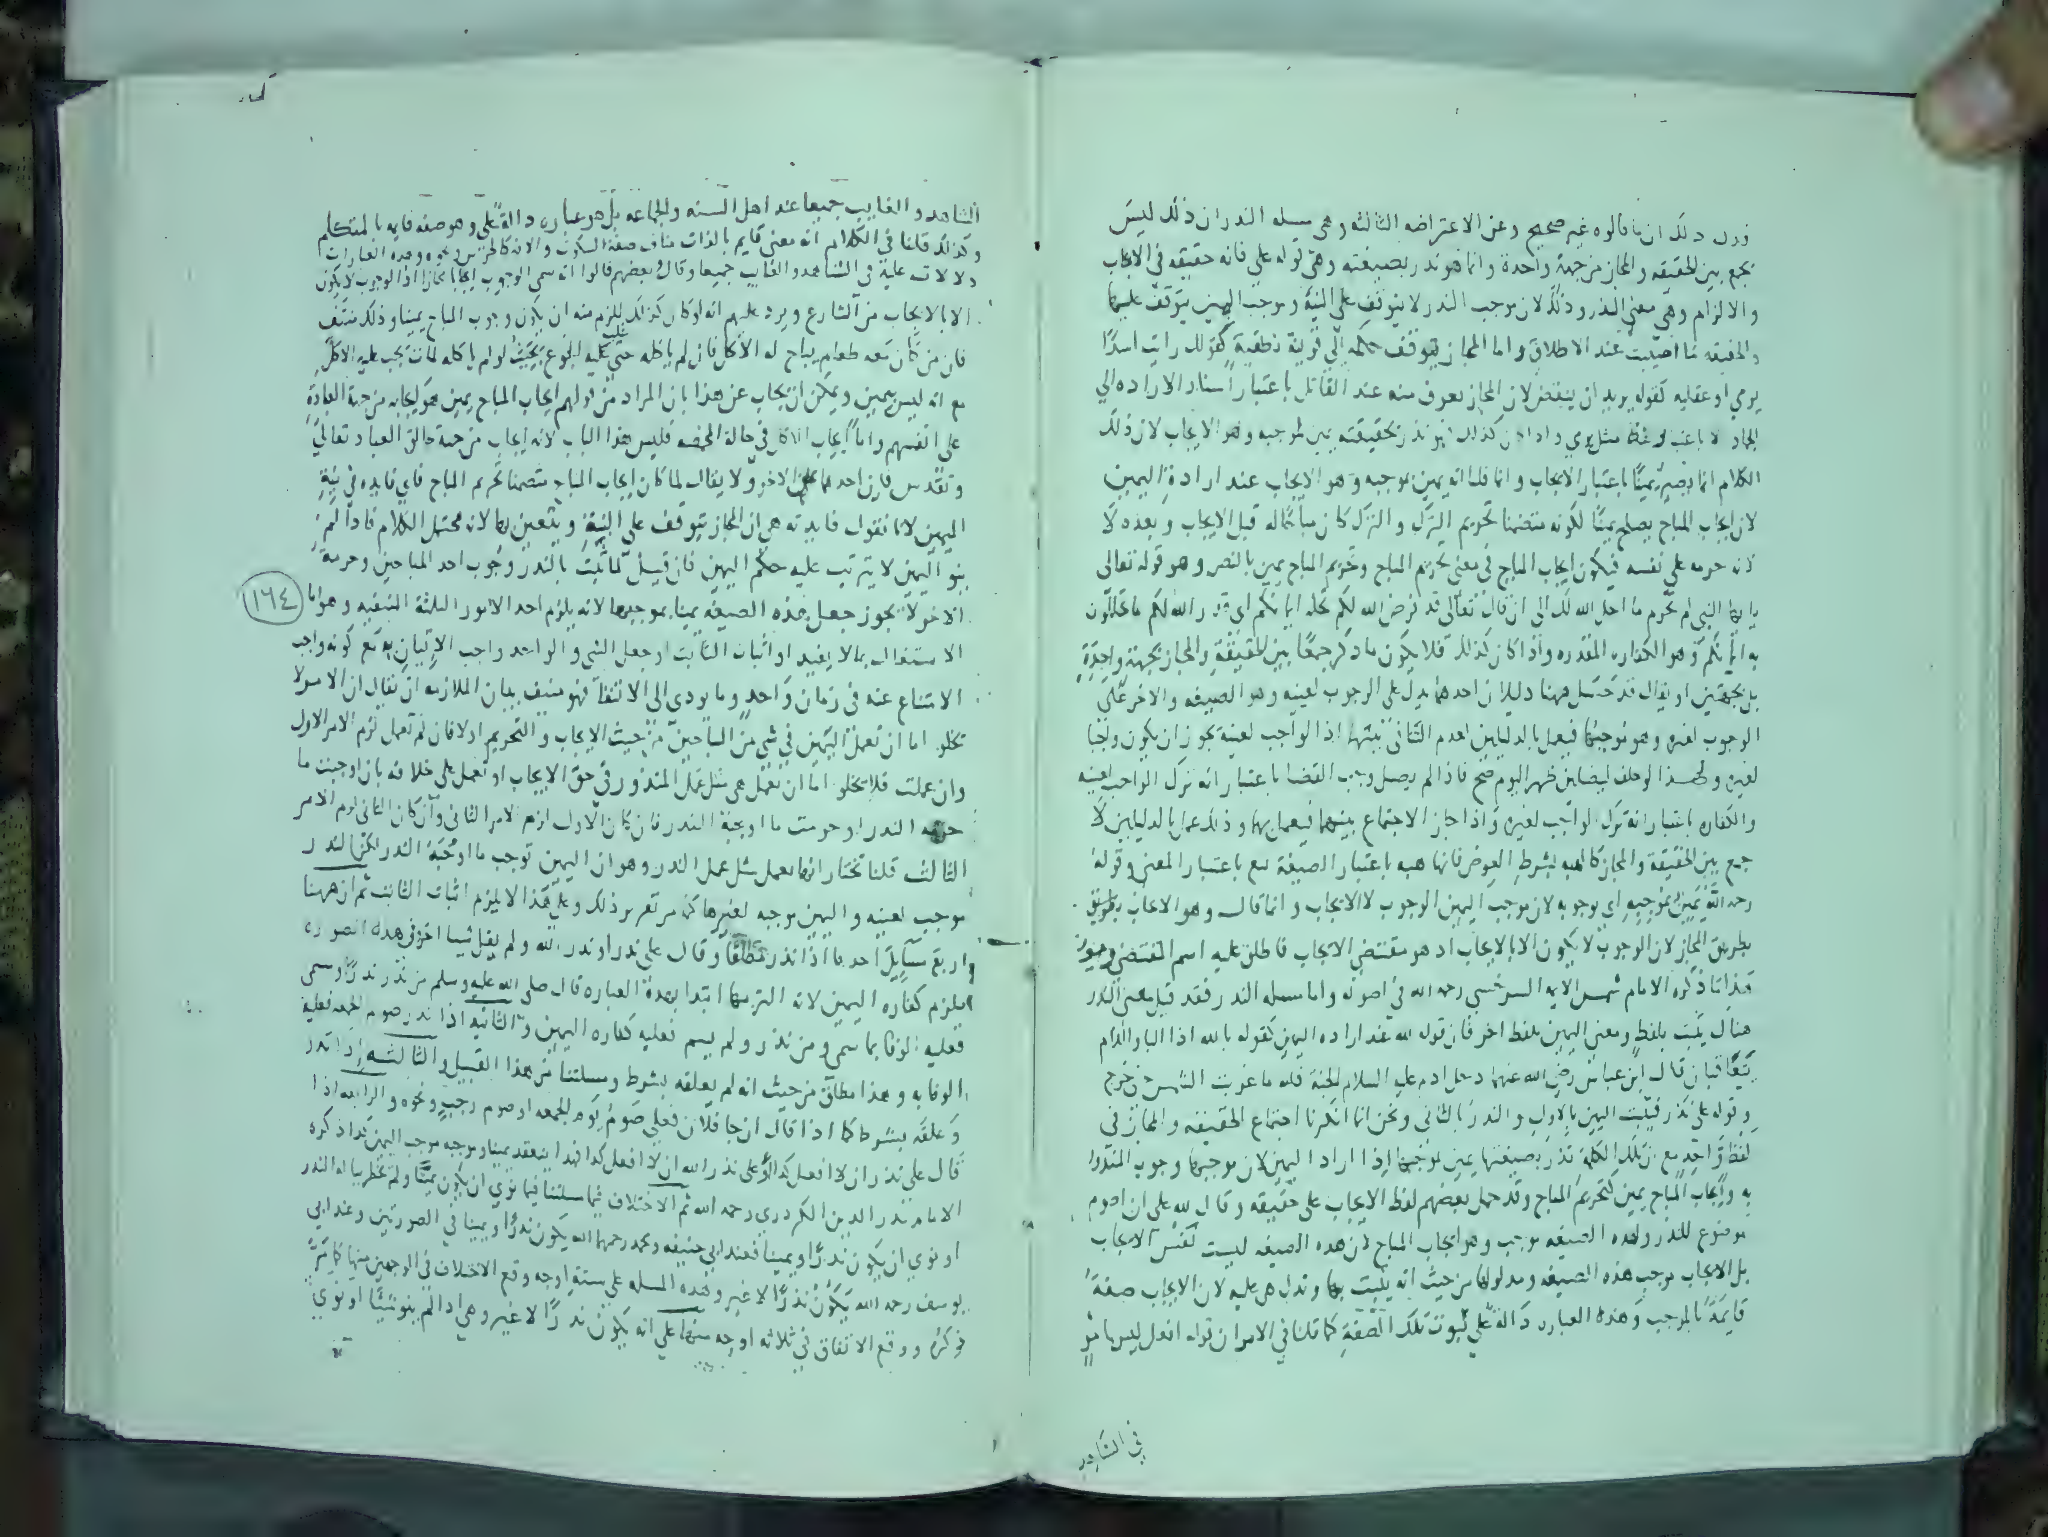 فدل ذلك ان ما قالوه غير صحيح وعن الاعتراضه الثالثه وهى مسله النذر ان ذلك ليس
بجمع بين الحقيقه والمجاز من جهة واحدة وانما هو نذر بصيغته وهى قوله على فانه حقيقه في الايجاب
والالزام وهى معنى النذر وذلك لان موجب النذر لا يتوقف على النية وموجب اليمين يتوقف عليها
والحقيقه ما اصيبت عند الاطلاق واما المجاز يتوقف حكمه الى قرينة نطقية كقولك رايت اسدا
يرمي او عقليه كقوله يريد ان ينقض لان المجاز يعرف منه عند القائل باعتبار اسناد الاراده الي
الجماد لا باعتبار لفظ مثل يرمي واذا كان كذلك فهو نذر بحقيقته يمين بموجبه وهو الايجاب لان ذلك
الكلام انما يصير يمينا باعتبار الايجاب وانما قلنا انه يمين بموجبه وهو الايجاب عند ارادة اليمين
لان ايجاب المباح يصلح يمينا لكونه متضمنا تحريم الترك والترك كان مباحا له قبل الايجاب وبعده لا
لانه حرمه على نفسه فيكون ايجاب المباح في معنى تحريم المباح وتحريم المباح يمين بالنص وهو قوله تعالى
يا ايها النبي لم تحرم ما احل الله لك الى ان قال تعالى قد فرض الله لكم تحله ايمانكم اى قدر الله لكم ما تحللون
به ايمانكم وهو الكفاره المقدره واذا كان كذلك فلا يكون ما ذكر جمعا بين الحقيقة والمجاز بجهة واحدة
بل بجهتين او يقال قد حصل ههنا دليلان احدهما يدل على الوجوب لعينه وهو الصيغه والاخر على
الوجوب لغيره وهو موجبها فيعمل بالدليلين لعدم الثانى بينهما اذ الواجب لعينه يجوز ان يكون واجبا
لغيره ولهذا لو حلف ليصلين ظهر اليوم صح فاذا لم يصل وجب القضا باعتبار انه ترك الواجب لعينه
والكفاره باعتبار انه ترك الواجب لغيره واذا جاز الاجتماع بينهما فيعمل بهما وذلك عمل بالدليلين لا
جمع بين الحقيقة والمجاز كالهبه بشرط العوض فانها هبه باعتبار الصيغة بيع باعتبار المعنى وقوله
رحمه الله يمين بموجبه اى بوجوبه لان موجب اليمين الوجوب لا الايجاب وانما قال وهو الايجاب بطريق
بطريق المجاز لان الوجوب لا يكون الا بالايجاب اذ هو مقتضى الايجاب فاطلق عليه اسم المقتضى
هذا ما ذكره الامام شمس الايمه السرخسي رحمه الله في اصوله واما مسله النذر فقد قيل معنى النذر
هناك يثبت بلفظ ومعنى اليمين بلفظ اخر فان قوله لله عند اراده اليمين كقوله بالله اذ البا واللام
يتعاقبان قال ابن عباس رضى الله عنهما دخل ادم عليه السلام الجنة فلله ما غربت الشمس حتى خرج
وقوله علي نذر فيثبت اليمين بالاول والنذر بالثانى ونحن انما انكرنا اجتماع الحقيقه والمجاز في
لفظ واحد مع ان تلك الكلمة نذر بصيغتها يمين بموجبها اذا اراد اليمين لان موجبها وجوب المنذور
به وايجاب المباح يمين كتحريم المباح وقد حمل بعضهم لفظ الايجاب على حقيقه وقال لله على ان اصوم
موضوع للنذر ولهذه الصيغه موجب وهو ايجاب المباح لان هذه الصيغه ليست نفس الايجاب
بل الايجاب موجب هذه الصيغه ومدلولها من حيث انه يثبت بها وتدل هى عليه لان الايجاب صفة
قايمة بالموجب وهذه العباره دالة على ثبوت تلك الصفة كما قلنا في الامر ان قوله افعل ليس بامر
في الشاهد
الشاهد والغايب جميعا عند اهل السنه والجماعه بل هو عباره دالة على وهو صفه قايمه بالمتكلم
وكذلك قلنا في الكلام انه معنى قايم بالذات مناف صفة السكوت والافه كالخرس ونحوه وهذه العبارات
دلالات عليه في الشاهد والغايب جميعا وقال بعضهم قالوا انه سمى الوجوب ايجابا مجازا اذ الوجوب لا يكون
الا بالايجاب من الشارع ويرد عليهم انه لو كان كذلك للزم منه ان يكون وجوب المباح يمينا وذلك منتف
فان من كان معه طعام يباح له الاكل فان لم ياكله حتى غلب عليه الجوع بحيث لو لم ياكله لمات يجب عليه الاكل
مع انه ليس بيمين ويمكن ان يجاب عن هذا بان المراد من قولهم ايجاب المباح يمين هو ايجابه من جهة العباد
على انفسهم واما ايجاب الاكل في حالة المخمصه فليس هذا الباب لانه ايجاب من جهة خالق العباد تعالى
وتقدس فاين احدهما من الاخر ولا يقال لما كان ايجاب المباح متضمنا تحريم المباح فاى فايده في نية
اليمين لانا نقول فايدته هى ان المجاز يتوقف على النية ويتعين بها لانه محتمل الكلام فاذا لم
ينو اليمين لا يترتب عليه حكم اليمين فان قيل لما ثبت بالنذر وجوب احد المباحين وحرمة
الاخر لا يجوز جعل هذه الصيغه يمينا بموجبها لانه يلزم احد الامور الثلثة المنفيه وهو اما
١٦٤
الاشتغال بما لا يفيد او اثبات الثابت او جعل الشي والواحد واجب الاتيان به مع كونه واجب
الامتناع عنه في زمان واحد وما يودي الى الانتفا فهو منتف بيان الملازمه ان يقال ان الامر لا
تخلو اما ان تعمل اليمين في شي من المباحين من حيث الايجاب والتحريم او لا فان لم تعمل لزم الامر الاول
وان عملت فلا تخلو اما ان تعمل هى مثل عمل المنذور في حق الايجاب او تعمل على خلافه بان اوجبت ما
حرمه النذر او حرمت ما اوجبة النذر فان كان الاول لزم الامر الثاني وان كان الثاني لزم الامر
الثالث قلنا نختار انها تعمل مثل عمل النذر وهو ان اليمين توجب ما اوجبة النذر لكن النذر
موجب لعينه واليمين موجبه لغيرها كما مر تقرير ذلك وعلى هذا لا يلزم اثبات الثابت ثم ان ههنا
اربع مسايل احدها اذا نذر مطلقا وقال على نذر او نذر الله ولم يقل شيا اخر في هذه الصوره
يلزم كفاره اليمين لانه التزمها ابتدا بهذه العباره قال صلى الله عليه وسلم من نذر نذرا وسمى
فعليه الوفا بما سمى ومن نذر ولم يسم فعليه كفاره اليمين والثانيه اذا نذر صوم الجمعه فعليه
الوفا به وهذا مطلق من حيث انه لم يعلقه بشرط ومسلتنا من هذا القبيل والثالثه اذا نذر
وعلقه بشرط كما اذا قال ان جا فلان فعلي صوم يوم الجمعه او صوم رجب ونحوه والرابعه اذا
قال علي نذر ان لا افعل كذا او على نذر الله ان لا افعل كذا فهذا ينعقد يمينا وموجبه موجب اليمين كذا ذكره
الامام بدر الدين الكردري رحمه الله ثم الاختلاف فيما مسلتنا فيما نوى ان يكون يمينا ولم يخطر بباله النذر
او نوى ان يكون نذرا ويمينا فعند ابي حنيفه ومحمد رحمهما الله يكون نذرا ويمينا في الصورتين وعند ابي
يوسف رحمه الله يكون نذرا لا غير وهذه المسله على ستة اوجه وقع الاختلاف في الوجهين منها كما مر
ذكره ووقع الاتفاق في ثلاثه اوجه منها على انه يكون نذرا لا غير وهى اذا لم ينو شيئا او نوى